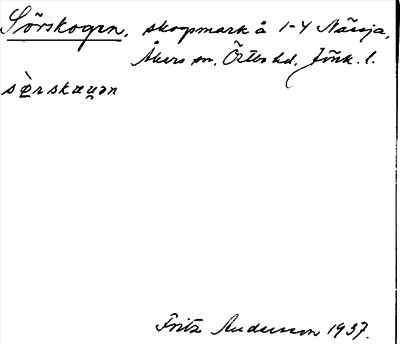 Sörskogen, skogsmark å 1-4 Nässja,
Åkers sn, Östbo hd, Jönk. l.
sè̤rskæɯ̤ən
Fritz Andersson 1937.